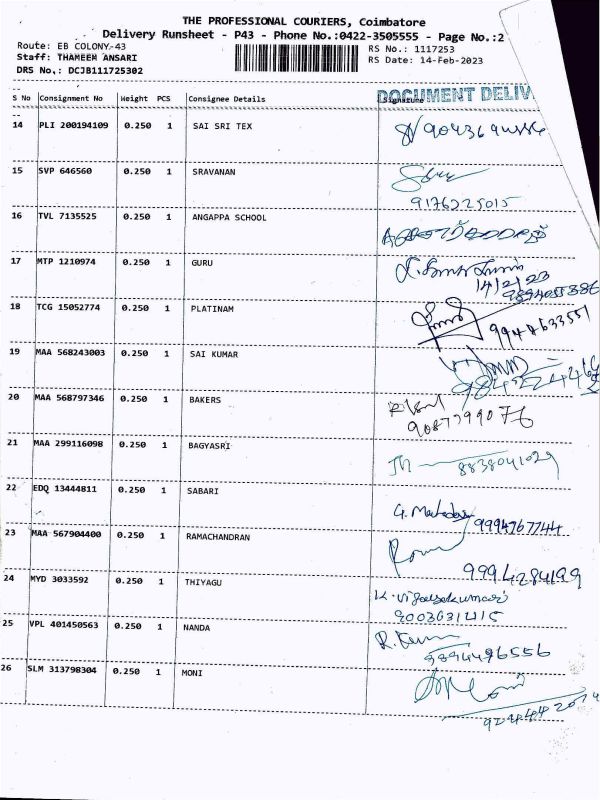 THE PROFESSIONAL COURIERS, Coimbatore
Delivery Runsheet - P43 - Phone No.:0422-3505555 - Page No.:2
Route: EB COLONY-43
Staff: THAMEEM ANSARI
DRS No.: DCJB111725302
RS No.: 1117253
RS Date: 14-Feb-2023
DOCUMENT DELIV
S No Consignment No Weight PCS Consignee Details Signature
14 PLI 200194109 0.250 1 SAI SRI TEX
15 SVP 646560 0.250 1 SRAVANAN
9176225015
16 TVL 7135525 0.250 1 ANGAPPA SCHOOL
17 MTP 1210974 0.250 1 GURU
14/2/23
9894055386
18 TCG 15052774 0.250 1 PLATINAM
19 MAA 568243003 0.250 1 SAI KUMAR
20 MAA 568797346 0.250 1 BAKERS
9087799076
21 MAA 299116098 0.250 1 BAGYASRI
8838041029
22 EDQ 13444811 0.250 1 SABARI
9994767744
23 MAA 567904400 0.250 1 RAMACHANDRAN
9994284199
24 MYD 3033592 0.250 1 THIYAGU
K. Vijayakumar
9003631415
25 VPL 401450563 0.250 1 NANDA
9894496556
26 SLM 313798304 0.250 1 MONI